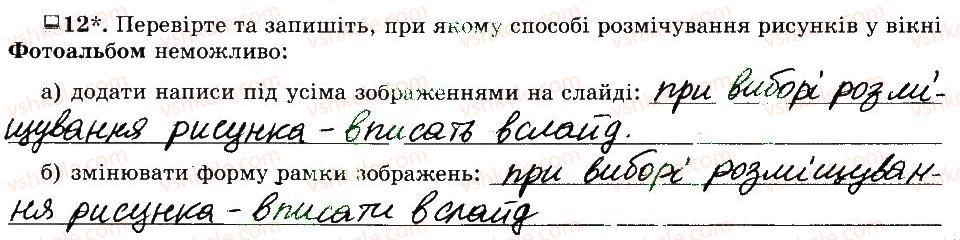 12*. Перевірте та запишіть, при якому способі розмічування рисунків у вікні
Фотоальбом неможливо:
а) додати написи під усіма зображеннями на слайді: при виборі розмі-
щування рисунка - вписать вслайд.
б) змінювати форму рамки зображень: при виборі розміщуван-
ня рисунка - вписати вслайд